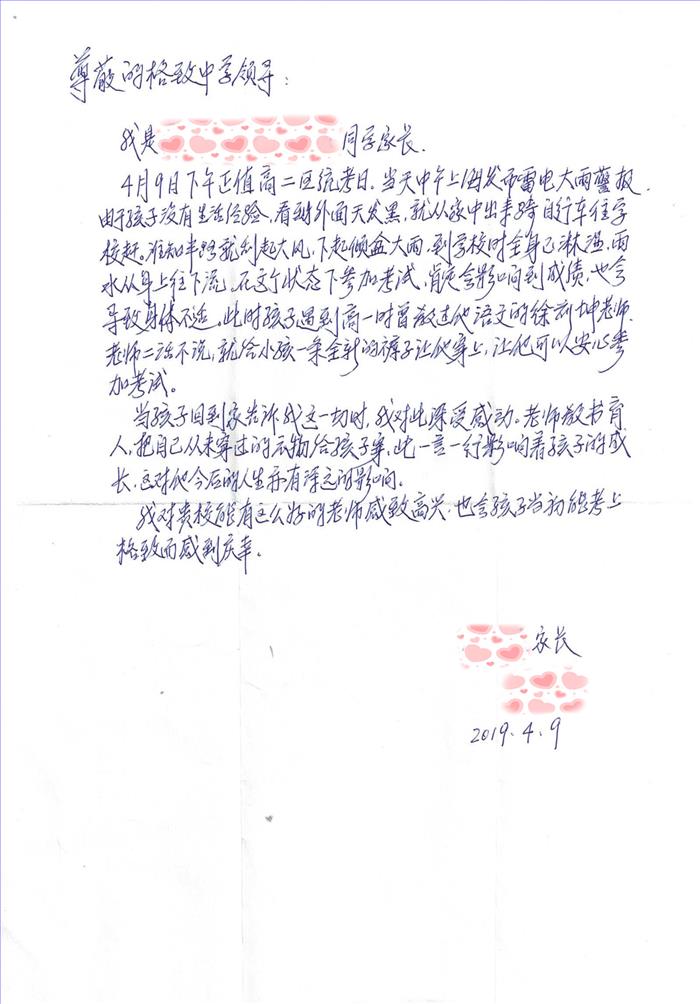 尊敬的格致中学领导：
我是 同学家长.
4月9日下午正值高二区统考日.当天中午上海发布雷电大雨警报.
由于孩子没有生活经验.看到外面天发黑.就从家中出来骑自行车往学
校赶.谁知半路就刮起大风,下起倾盆大雨.到学校时全身已淋湿,雨
水从身上往下流.在这个状态下参加考试,肯定会影响到成绩,也会
导致身体不适.此时孩子遇到高一时曾教过他语文的徐 坤老师.
老师二话不说,就给小孩一条全新的裤子让他穿上,让他可以安心参
加考试。
当孩子回到家告诉我这一切时,我对此深受感动.老师教书育
人,把自己从未穿过的衣物给孩子穿,此一言一行影响着孩子的成
长.这对他今后的人生亦有深远的影响.
我对贵校能有这么好的老师感致高兴,也含孩子当初能考上
格致而感到庆幸。
家长
2019.4.9